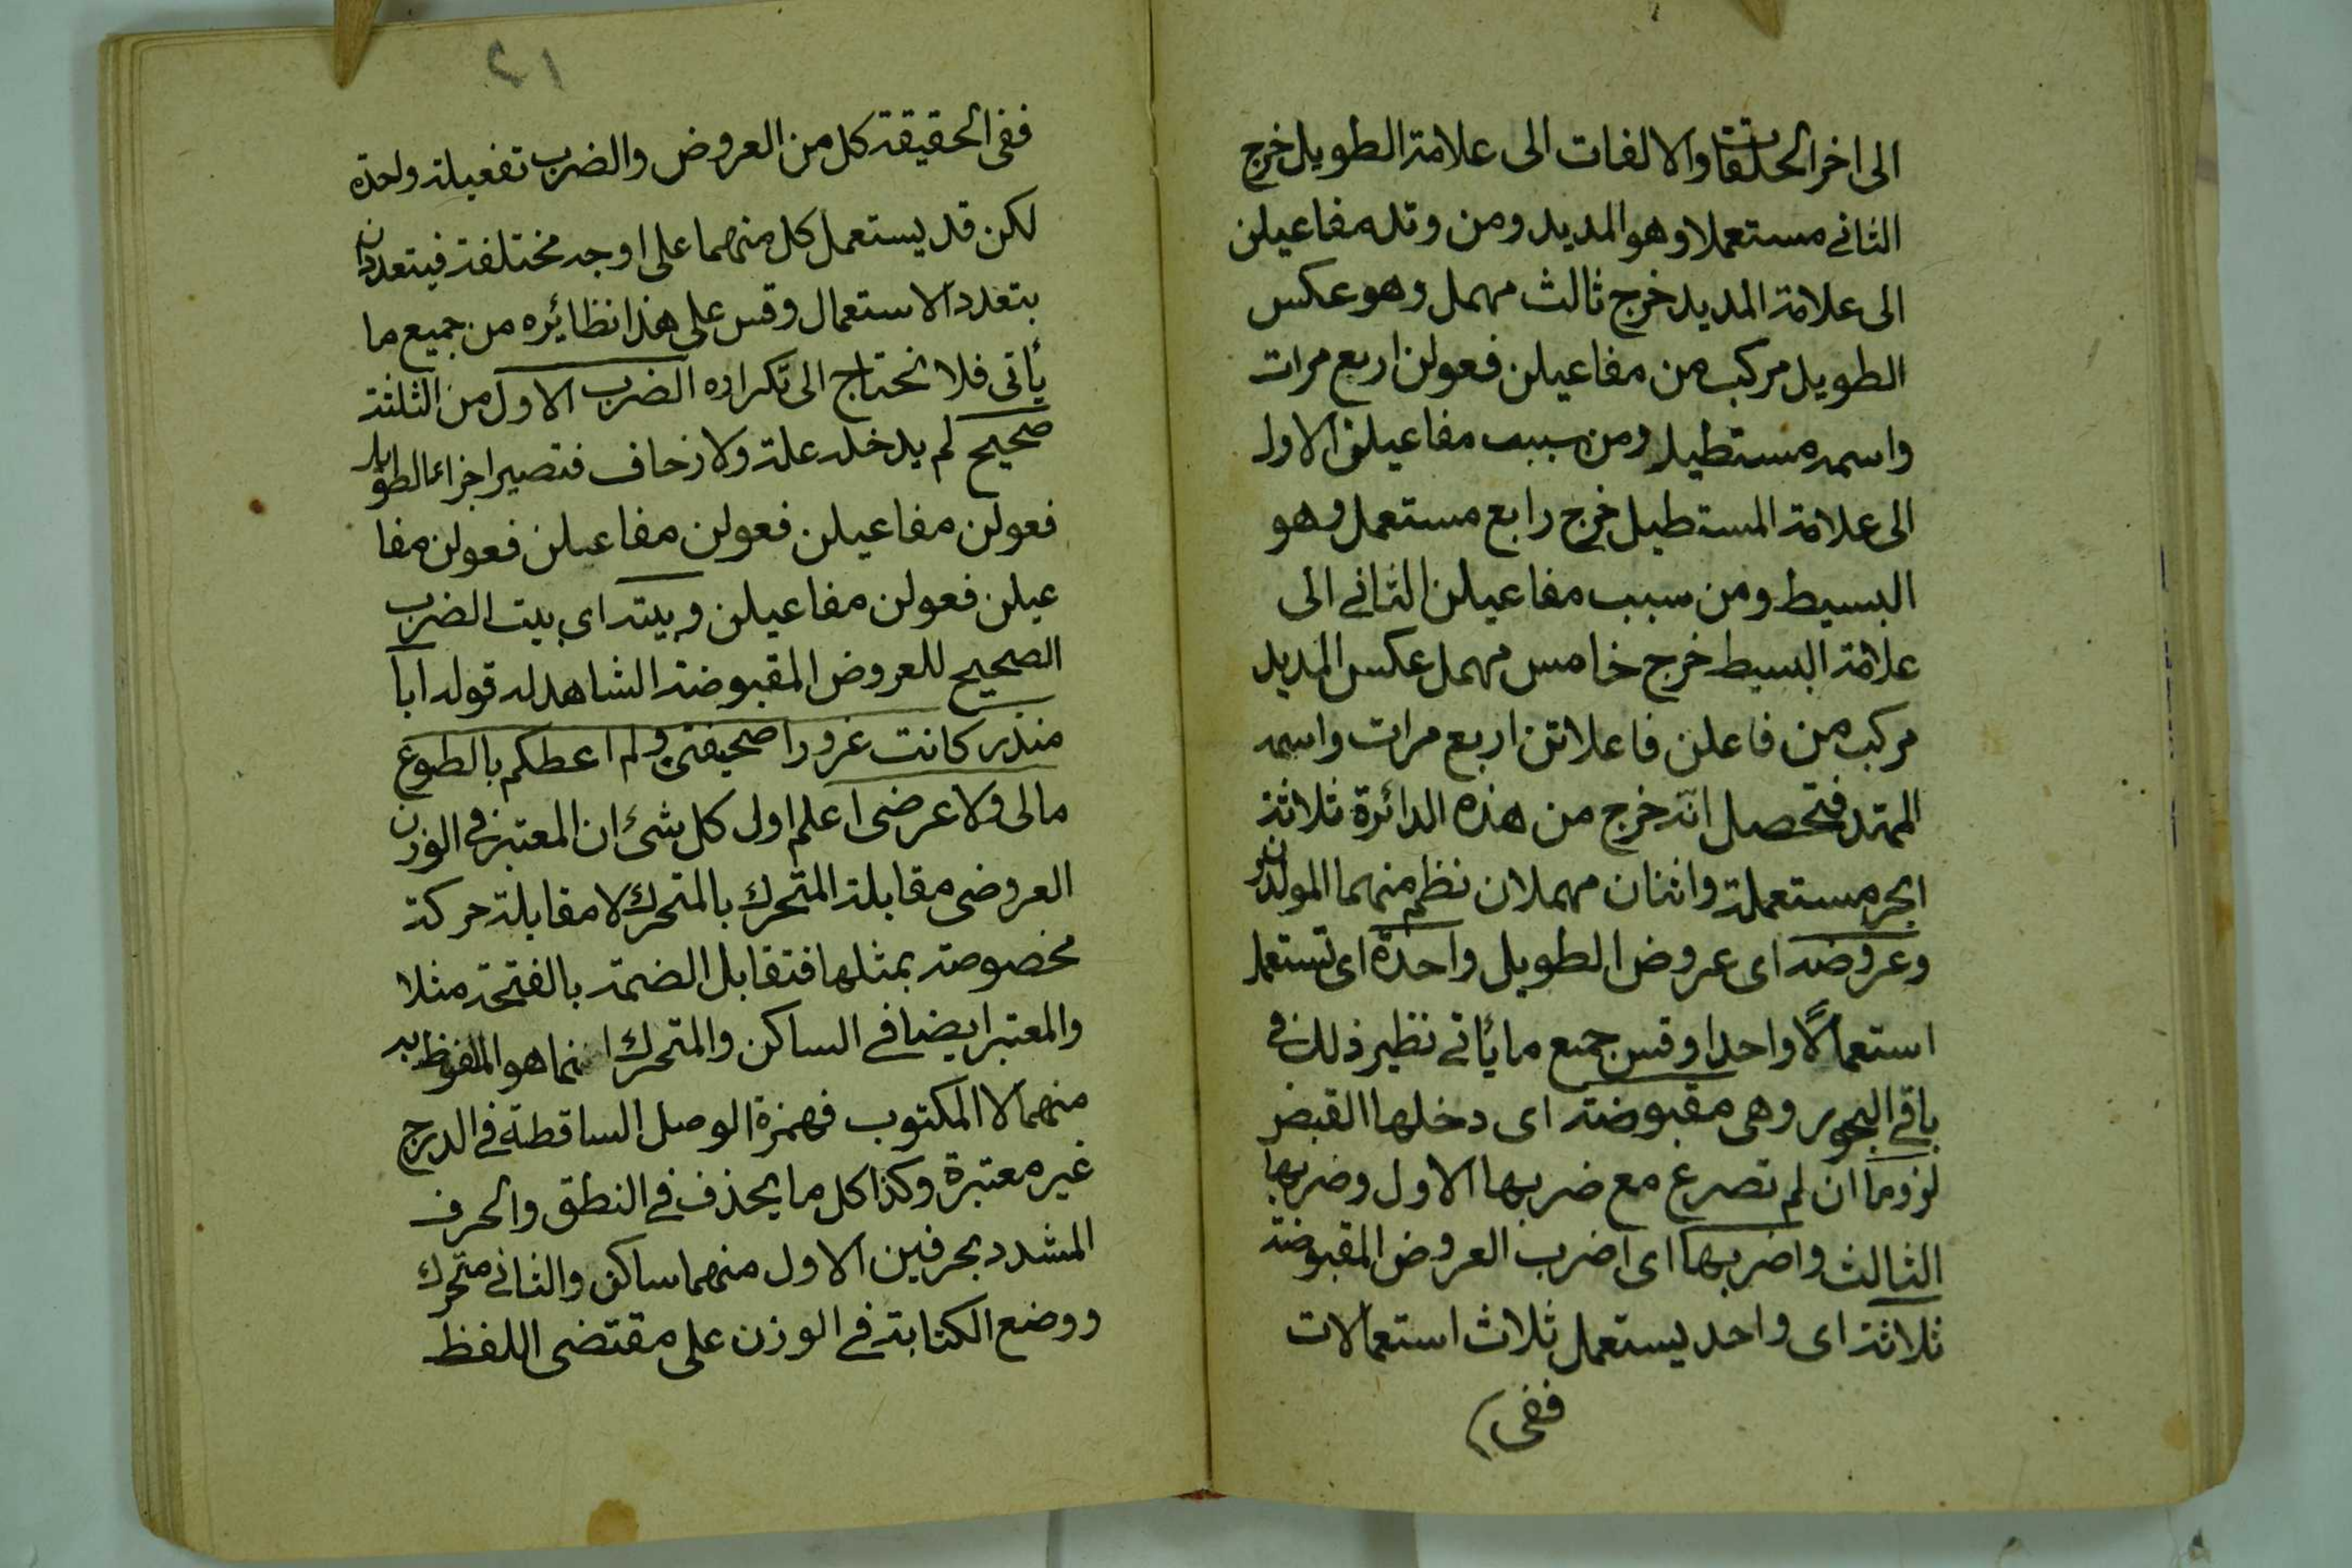 الى اخر الحلقات والالفات الى علامة الطويل خرج
الثانى مستعملا وهو المديد ومن وتد مفاعيلن
الى علامة المديد خرج ثالث مهمل وهو عكس
الطويل مركب من مفاعيلن فعولن اربع مرات
واسمه مستطيل ومن سبب مفاعيلن الاول
الى علامة المستطيل خرج رابع مستعمل وهو
البسيط ومن سبب مفاعيلن الثانى الى
علامة البسيط خرج خامس مهمل عكس المديد
مركب من فاعلن فاعلاتن اربع مرات واسمه
الممتد فتحصل انه خرج من هذه الدائرة ثلاثة
ابحر مستعملة واثنان مهملان نظم منهما المولدون
وعروضه اى عروض الطويل واحدة اى تستعمل
استعمالًا واحدا وقس جميع ما يأتى نظير ذلك فى
باقى البحور وهى مقبوضة اى دخلها القبض
لزوما ان لم تصرع مع ضربها الاول وضربها
الثالث واضربها اى اضرب العروض المقبوضة
ثلاثة اى واحد يستعمل ثلاث استعمالات
ففى
١٢
ففى الحقيقة كل من العروض والضرب تفعيلة واحدة
لكن قد يستعمل كل منهما على اوجه مختلفة فيتعددان
بتعدد الاستعمال وقس على هذا نظائره من جميع ما
يأتى فلا نحتاج الى تكراره الضرب الاول من الثلثة
صحيح لم يدخله علة ولا زحاف فتصير اجزاء الطويل
فعولن مفاعيلن فعولن مفاعيلن فعولن مفا
عيلن فعولن مفاعيلن وبيته اى بيت الضرب
الصحيح للعروض المقبوضة الشاهد له قوله ابا
منذر كانت غرورا صحيفتى ولم اعطكم بالطوع
مالى ولا عرضى اعلم اول كل شئ ان المعتبر فى الوزن
العروضى مقابلة المتحرك بالمتحرك لا مقابلة حركة
مخصوصة بمثلها فتقابل الضمة بالفتحة مثلا
والمعتبر ايضا فى الساكن والمتحرك انما هو الملفوظ به
منهما لا المكتوب فهمزة الوصل الساقطة فى الدرج
غير معتبرة وكذا كل ما يحذف فى النطق والحرف
المشدد بحرفين الاول منهما ساكن والثانى متحرك
ووضع الكتابة فى الوزن على مقتضى اللفظ